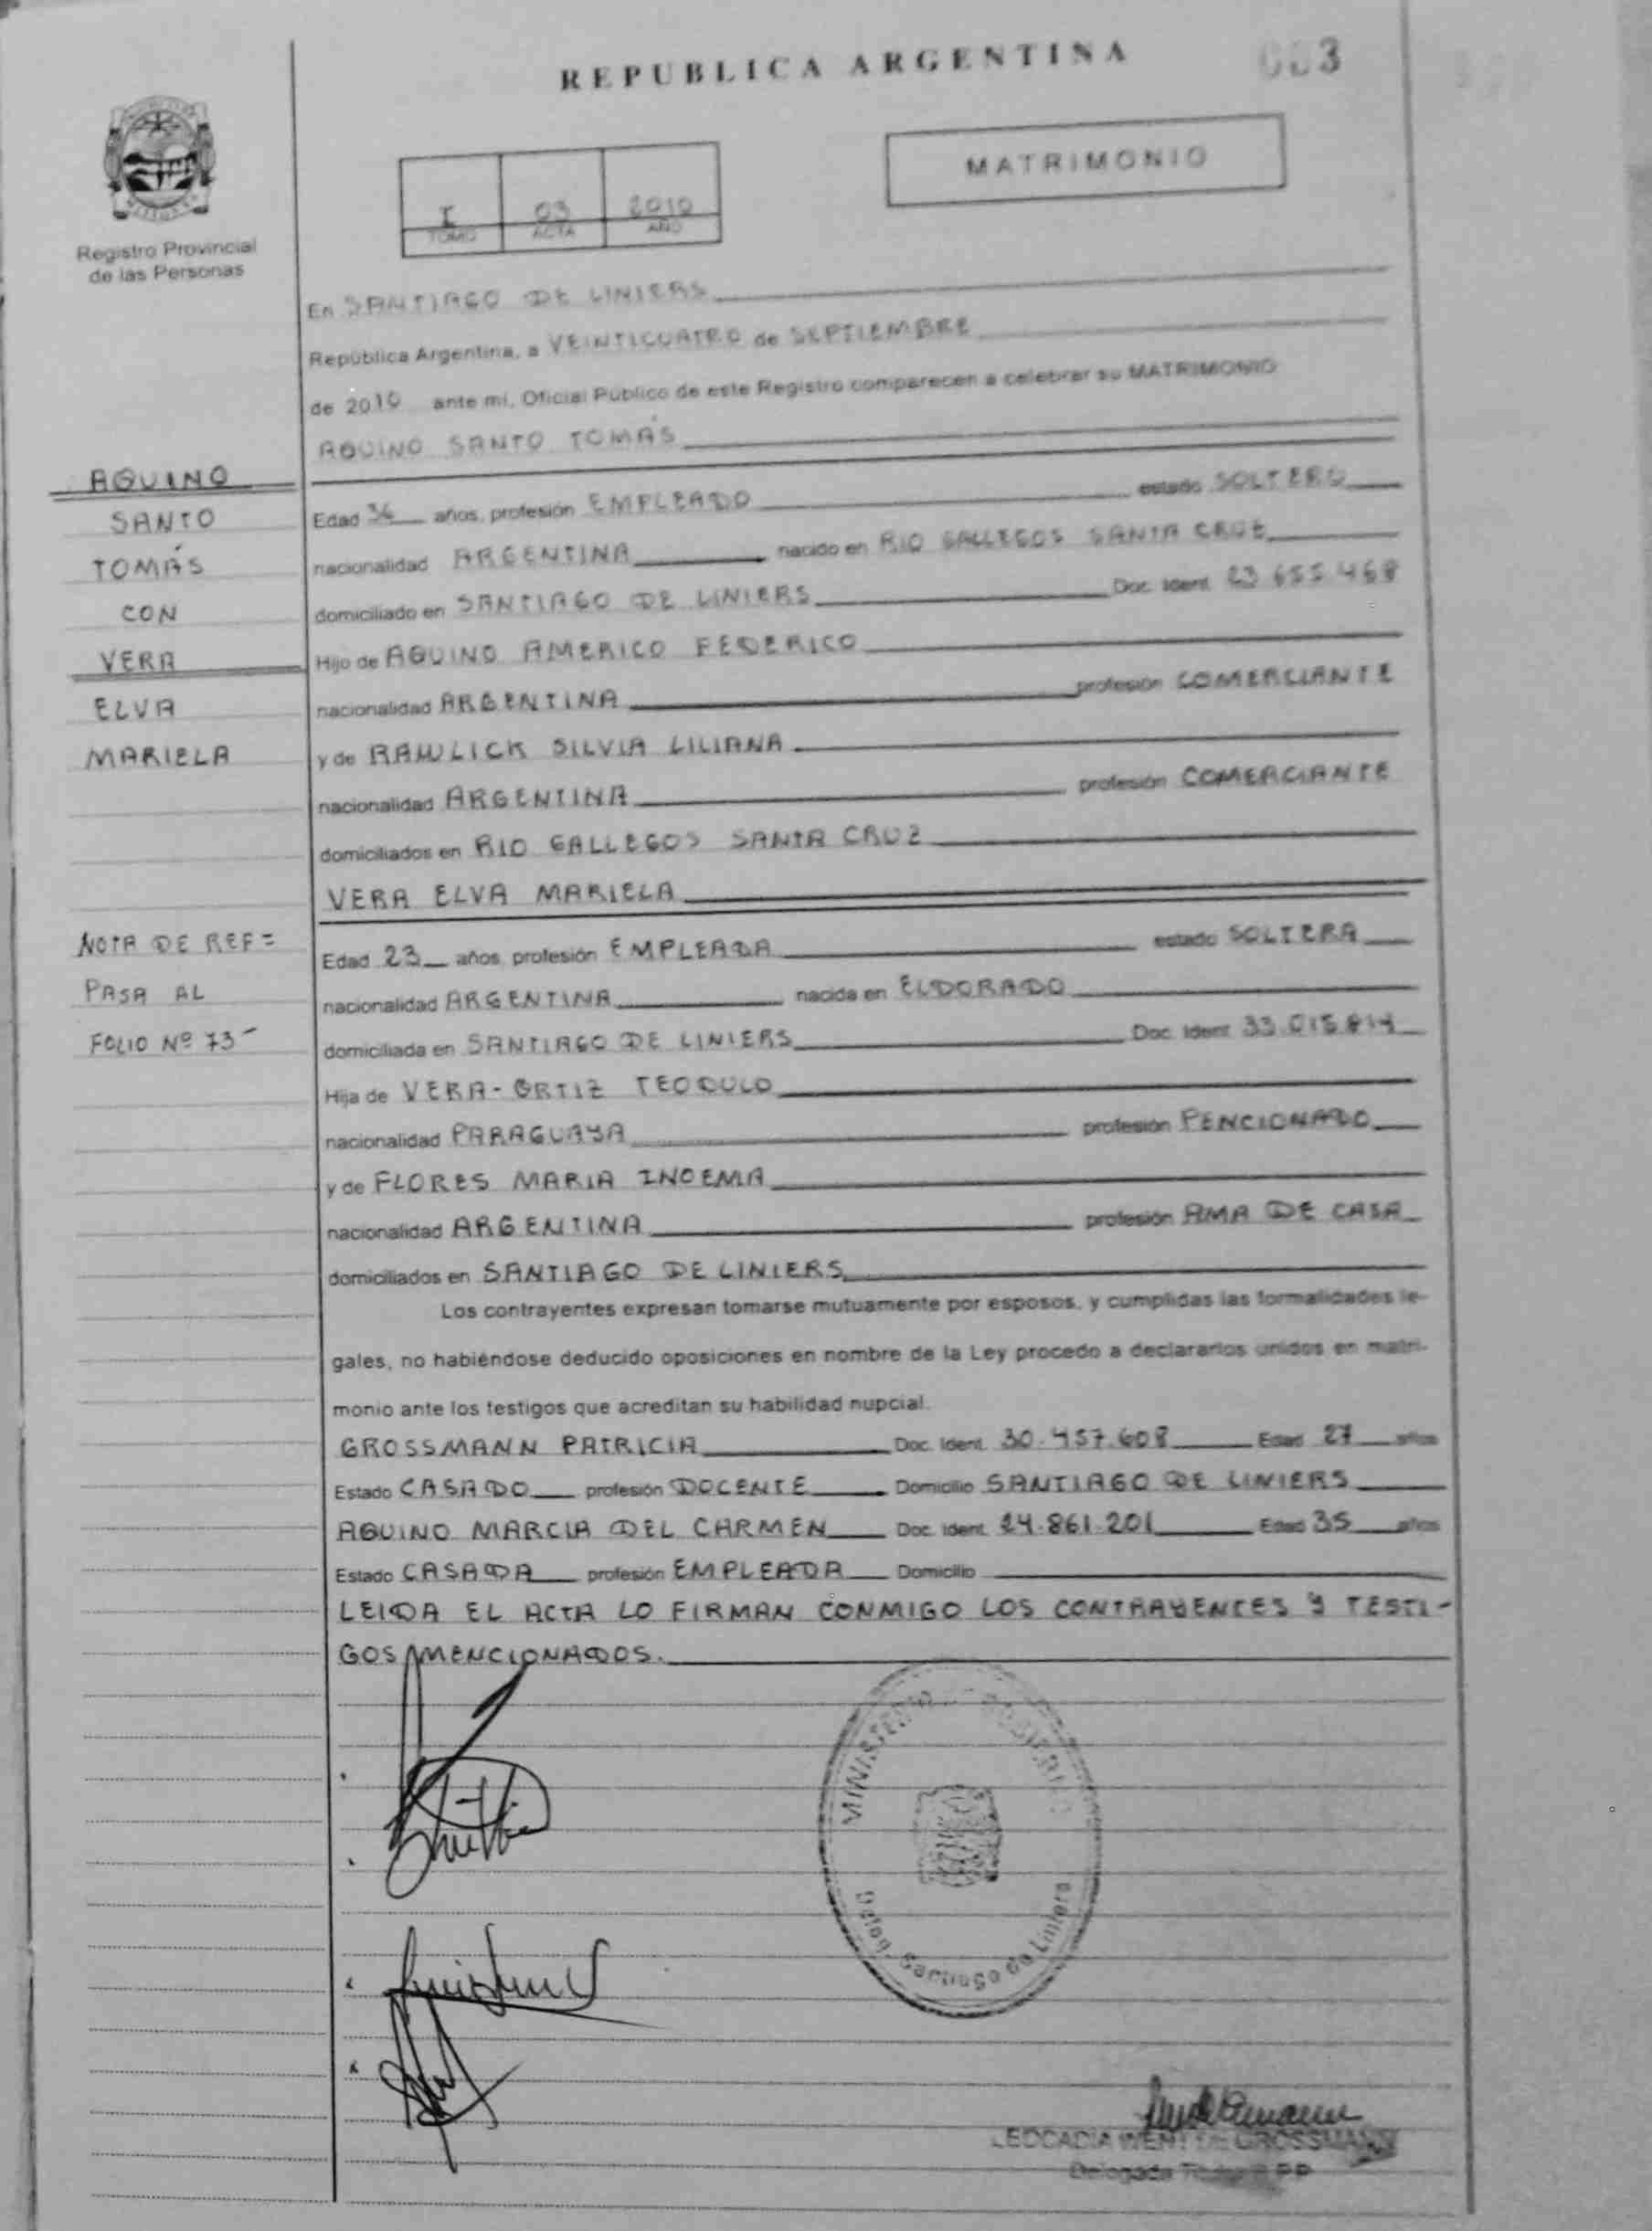 REPUBLICA ARGENTINA
3
MATRIMONIO
I 03 2010
TOMO ACTA AÑO
Registro Provincial
de las Personas
En SANTIAGO DE LINIERS
República Argentina, a VEINTICUATRO de SEPTIEMBRE
de 2010 ante mí, Oficial Público de este Registro comparecen a celebrar su MATRIMONIO
AQUINO SANTO TOMÁS
AQUINO
SANTO
TOMÁS
CON
VERA
ELVA
MARIELA
Edad 36 años, profesión EMPLEADO estado SOLTERO
nacionalidad ARGENTINA nacido en RIO GALLEGOS SANTA CRUZ
domiciliado en SANTIAGO DE LINIERS Doc. Ident. 23.655.468
Hijo de AQUINO AMERICO FEDERICO
nacionalidad ARGENTINA profesión COMERCIANTE
y de RAWLICK SILVIA LILIANA
nacionalidad ARGENTINA profesión COMERCIANTE
domiciliados en RIO GALLEGOS SANTA CRUZ
VERA ELVA MARIELA
NOTA DE REF=
PASA AL
FOLIO Nº 73-
Edad 23 años profesión EMPLEADA estado SOLTERA
nacionalidad ARGENTINA nacida en ELDORADO
domiciliada en SANTIAGO DE LINIERS Doc. Ident. 33.015.814
Hija de VERA-ORTIZ TEODULO
nacionalidad PARAGUAYA profesión PENCIONADO
y de FLORES MARIA INOEMA
nacionalidad ARGENTINA profesión AMA DE CASA
domiciliados en SANTIAGO DE LINIERS
Los contrayentes expresan tomarse mutuamente por esposos, y cumplidas las formalidades le-
gales, no habiéndose deducido oposiciones en nombre de la Ley procedo a declararlos unidos en matri-
monio ante los testigos que acreditan su habilidad nupcial.
GROSSMANN PATRICIA Doc. Ident. 30.457.608 Edad 27 años
Estado CASADO profesión DOCENTE Domicilio SANTIAGO DE LINIERS
AQUINO MARCIA DEL CARMEN Doc. Ident. 24.861.201 Edad 35 años
Estado CASADA profesión EMPLEADA Domicilio
LEIDA EL ACTA LO FIRMAN CONMIGO LOS CONTRAYENTES Y TESTI-
GOS MENCIONADOS.
MINISTERIO GOBIERNO
Deleg. Santiago de Liniers
LEOCADIA WENT DE GROSSMANN
Delegada